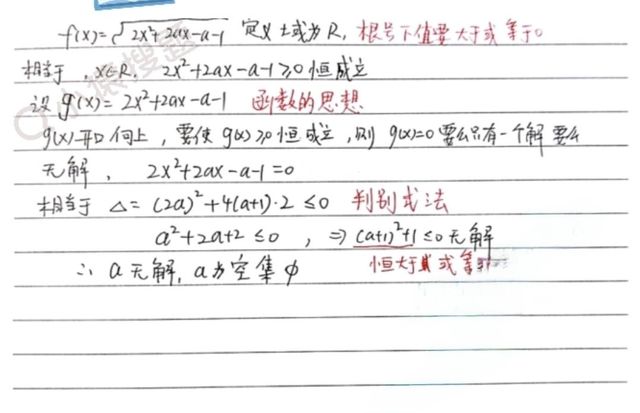 f(x)=√2x²+2ax-a-1 定义域为R, 根号下值要大于或等于0
相当于, x∈R, 2x²+2ax-a-1≥0恒成立
设 g(x)=2x²+2ax-a-1 函数的思想
g(x)开口向上, 要使 g(x)≥0恒成立, 则 g(x)=0要么只有一个解要么
无解, 2x²+2ax-a-1=0
相当于 Δ=(2a)²+4(a+1)·2≤0 判别式法
a²+2a+2≤0, ⇒(a+1)²+1≤0无解
∴ a无解, a为空集φ 恒大于或等于